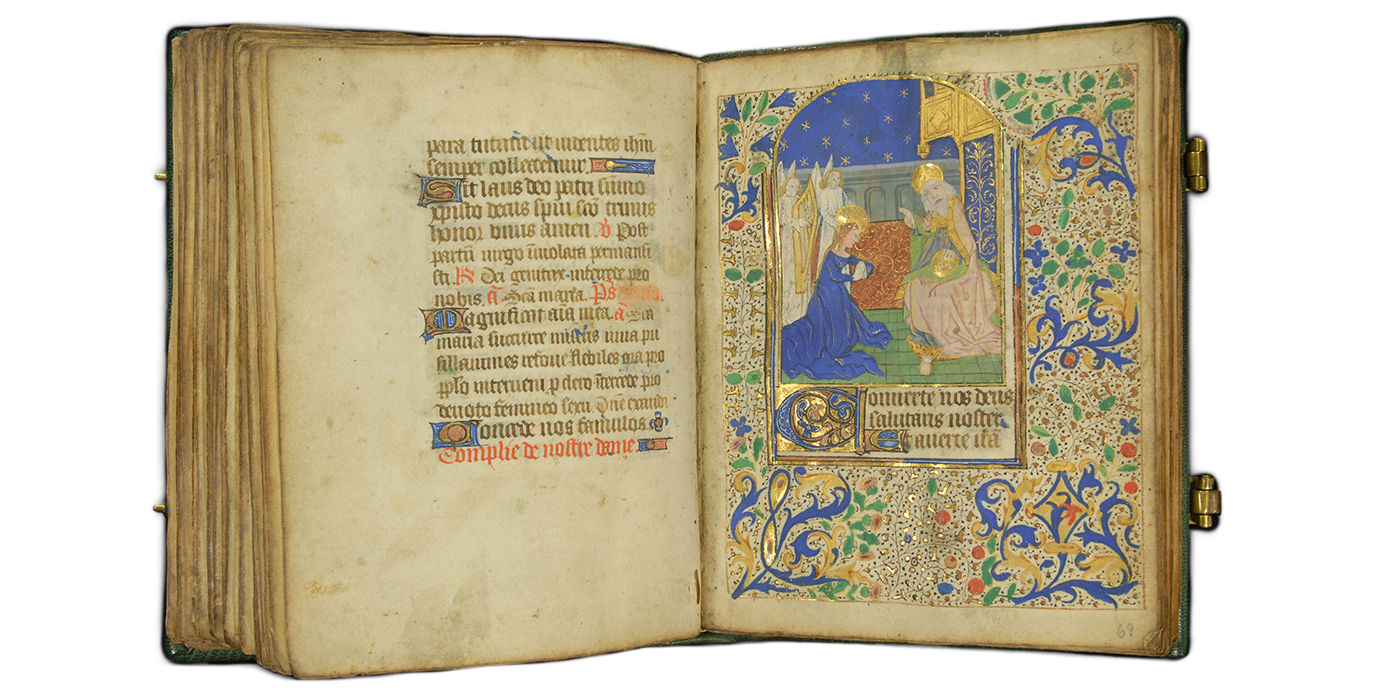 para tutum ut uidentes ihm
semper collectemur
Sit laus deo patri sumo
xpisto decus spiui sco trinus
honor unus amen V Post
partu uirgo inuiolata permansi
sti R Dei genitrix intercede pro
nobis a Sca maria Ps
Magnificat aia mea a Sca
maria succurre miseris iuua pu
sillanimes refoue flebiles ora pro
pplo interueni p clero intercede pro
deuoto femineo sexu Dne exaudi
Concede nos famulos
Complie de nostre dame
68
Conuerte nos deus
salutaris noster
Et auerte ira
69